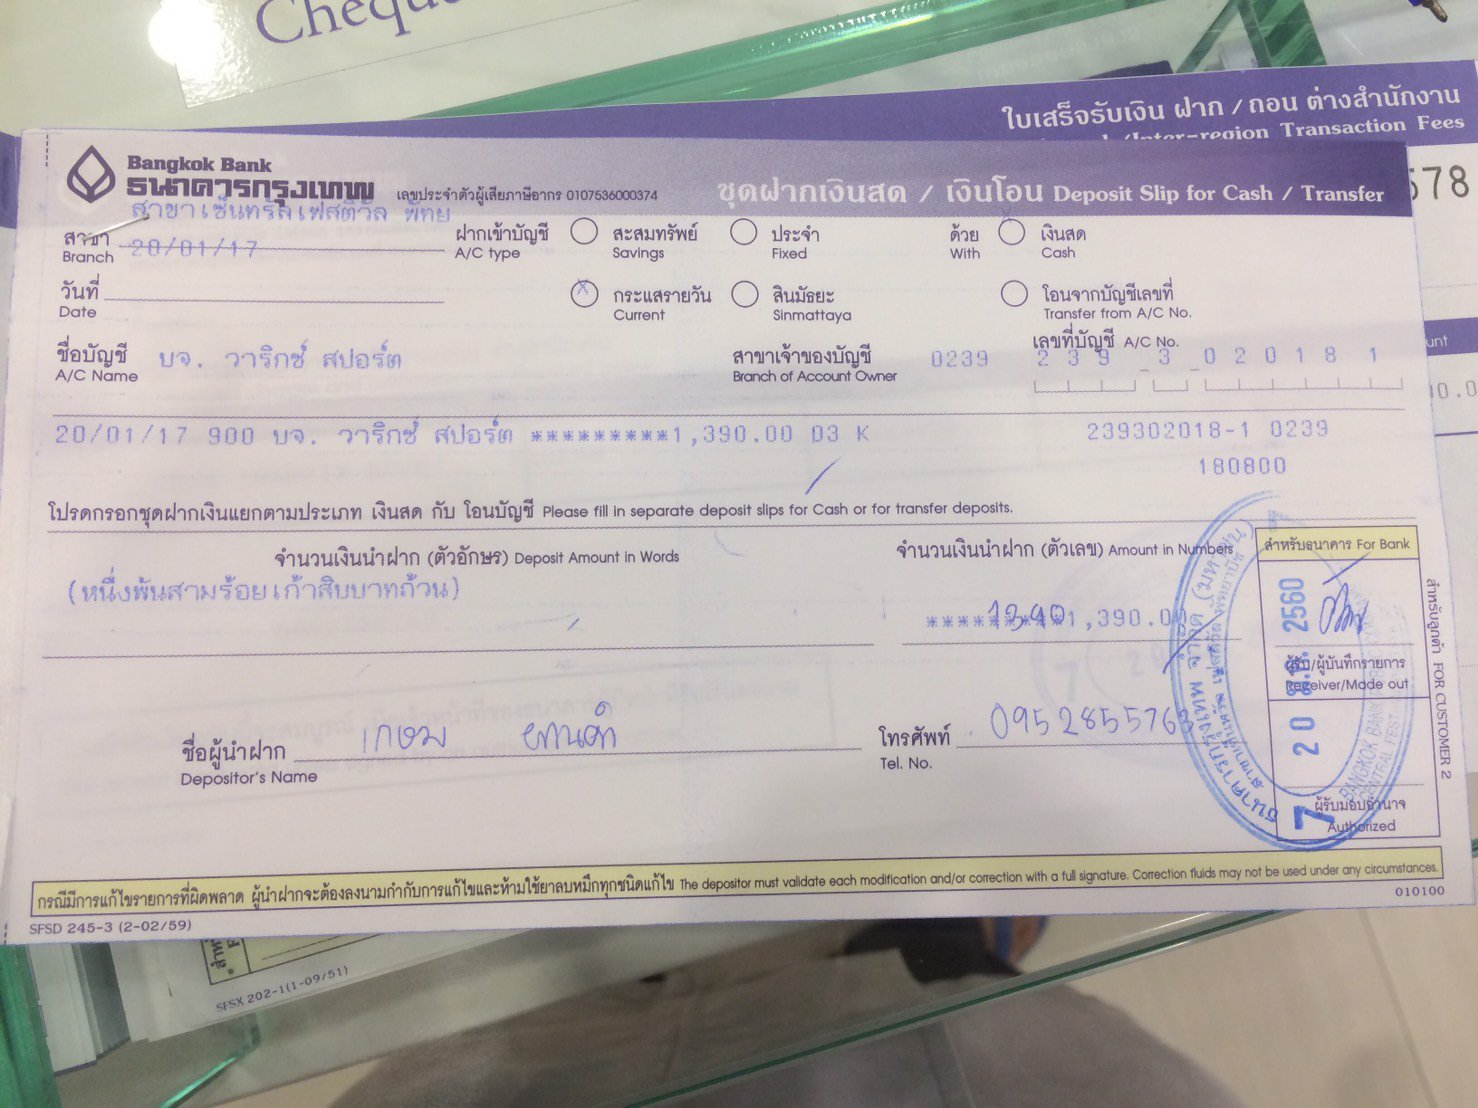 Cheque
ใบเสร็จรับเงิน ฝาก / ถอน ต่างสำนักงาน
/Inter-region Transaction Fees
578
Bangkok Bank
ธนาคารกรุงเทพ
เลขประจำตัวผู้เสียภาษีอากร 0107536000374
ชุดฝากเงินสด / เงินโอน Deposit Slip for Cash / Transfer
สาขาเซ็นทรัลเฟสติวัล พัทย
สาขา
Branch
20/01/17
ฝากเข้าบัญชี
A/C type
สะสมทรัพย์
Savings
ประจำ
Fixed
ด้วย
With
เงินสด
Cash
วันที่
Date
X
กระแสรายวัน
Current
สินมัธยะ
Sinmattaya
โอนจากบัญชีเลขที่
Transfer from A/C No.
ชื่อบัญชี
A/C Name
บจ. วาริกซ์ สปอร์ต
สาขาเจ้าของบัญชี
Branch of Account Owner
0239
เลขที่บัญชี A/C No.
239 _ 3 _ 020181
20/01/17 900 บจ. วาริกซ์ สปอร์ต *********1,390.00 D3 K
239302018-1 0239
180800
โปรดกรอกชุดฝากเงินแยกตามประเภท เงินสด กับ โอนบัญชี Please fill in separate deposit slips for Cash or for transfer deposits.
จำนวนเงินนำฝาก (ตัวอักษร) Deposit Amount in Words
จำนวนเงินนำฝาก (ตัวเลข) Amount in Numbers
สำหรับธนาคาร For Bank
(หนึ่งพันสามร้อยเก้าสิบบาทถ้วน)
*********1,390.00
1390
ผู้รับ/ผู้บันทึกรายการ
Receiver/Made out
7 20 ม.ค. 2560
ชื่อผู้นำฝาก
Depositor's Name
เกษม
โทรศัพท์
Tel. No.
095285576
ผู้รับมอบอำนาจ
Authorized
สำหรับลูกค้า FOR CUSTOMER 2
กรณีมีการแก้ไขรายการที่ผิดพลาด ผู้นำฝากจะต้องลงนามกำกับการแก้ไขและห้ามใช้ยาลบหมึกทุกชนิดแก้ไข The depositor must validate each modification and/or correction with a full signature. Correction fluids may not be used under any circumstances.
SFSD 245-3 (2-02/59)
010100
SFSX 202-1(1-09/51)